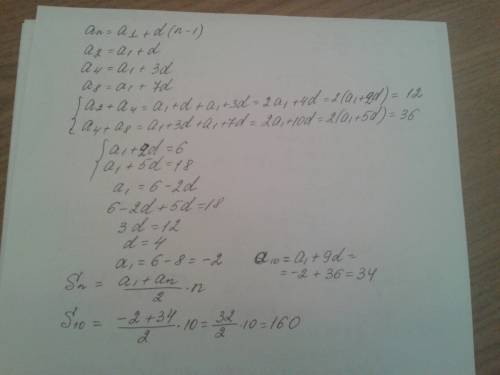 an = a1 + d(n-1)
a2 = a1 + d
a4 = a1 + 3d
a8 = a1 + 7d
{ a2 + a4 = a1 + d + a1 + 3d = 2a1 + 4d = 2(a1 + 2d) = 12
a4 + a8 = a1 + 3d + a1 + 7d = 2a1 + 10d = 2(a1 + 5d) = 36
{ a1 + 2d = 6
a1 + 5d = 18
a1 = 6 - 2d
6 - 2d + 5d = 18
3d = 12
d = 4
a1 = 6 - 8 = -2
a10 = a1 + 9d =
= -2 + 36 = 34
Sn = (a1 + an)/2 · n
S10 = (-2 + 34)/2 · 10 = 32/2 · 10 = 160